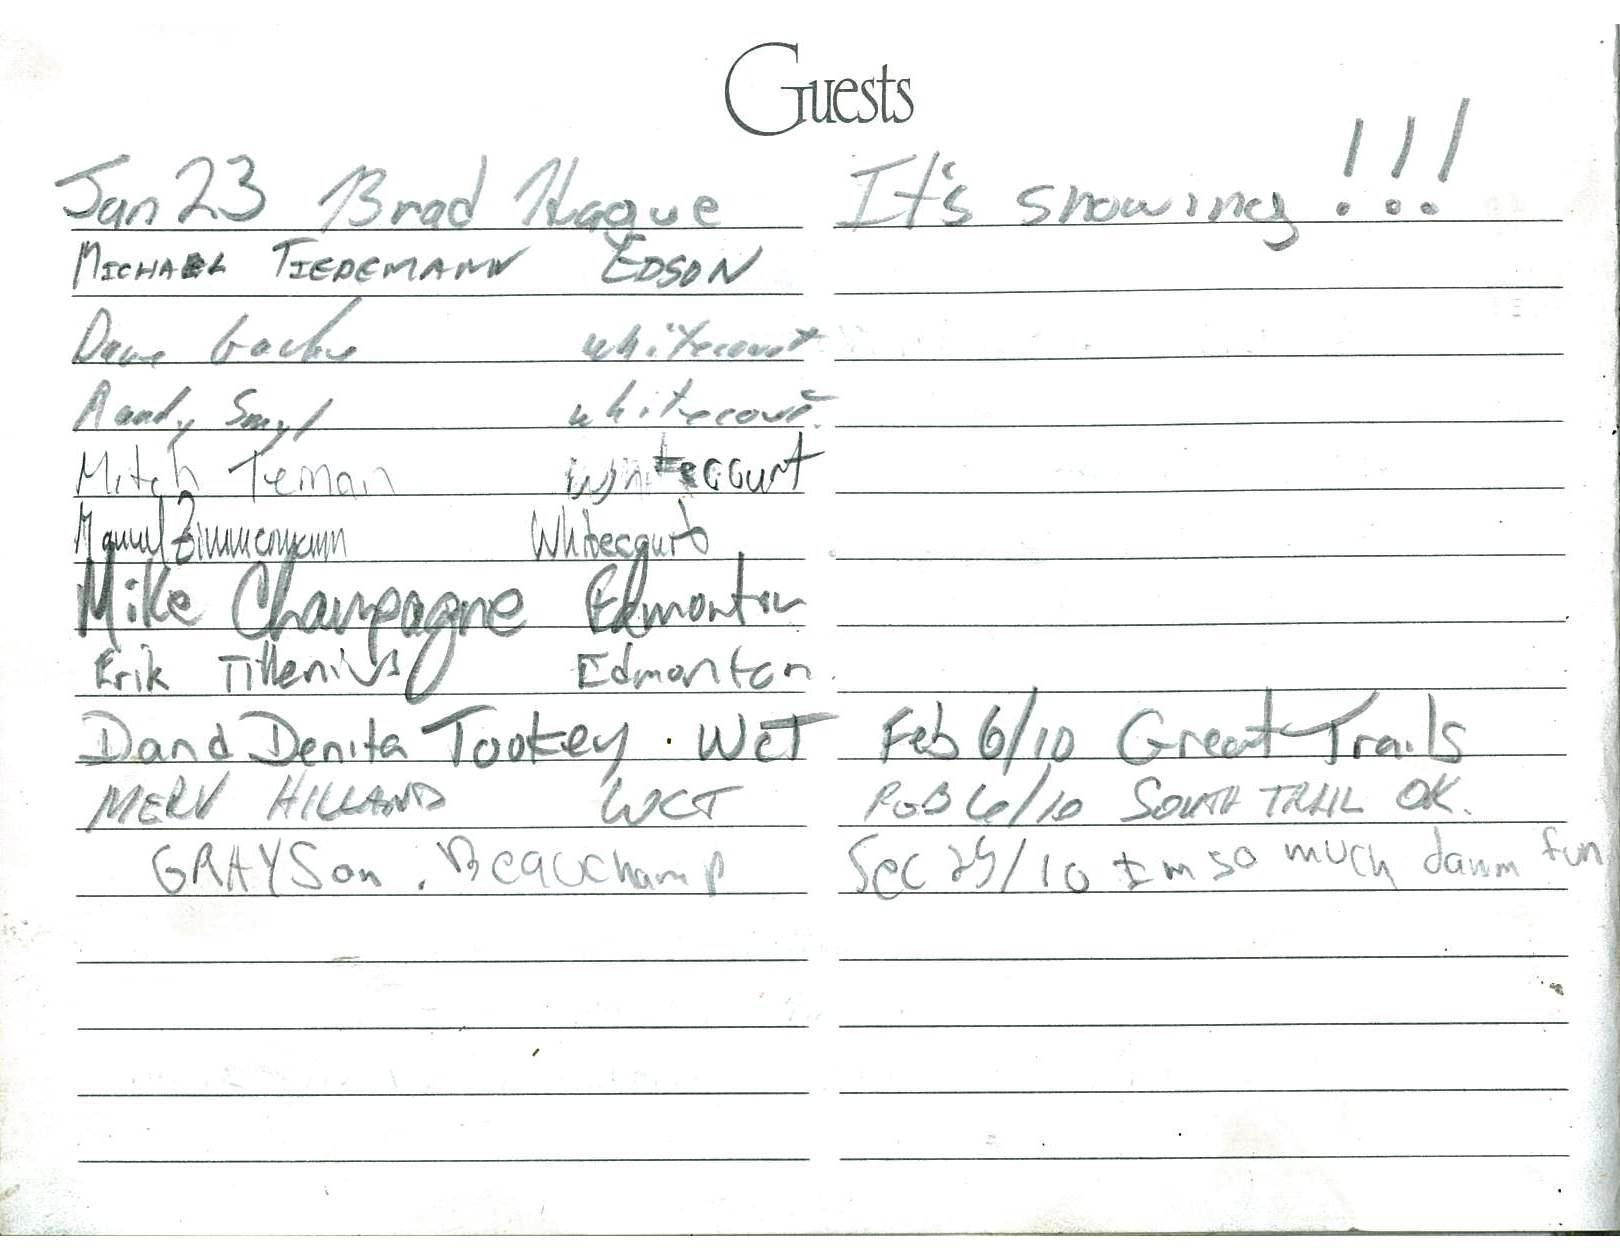 Guests
Jan 23 Brad Hague It's snowing!!!
MICHAEL TIEDEMANN EDSON
Dave whitecourt
Randy Smyl whitecourt.
Mitch Temain Whitecourt
Manuel Zimmermann Whitecourt
Mike Champagne Edmonton
Erik Tillenius Edmonton.
D and Denita Tookey. WCT Feb 6/10 Great Trails
MERV HILLAND WCT FEB 6/10 SOUTH TRAIL OK.
GRAYSon. Beauchamp 25/10 Im so much damm fun